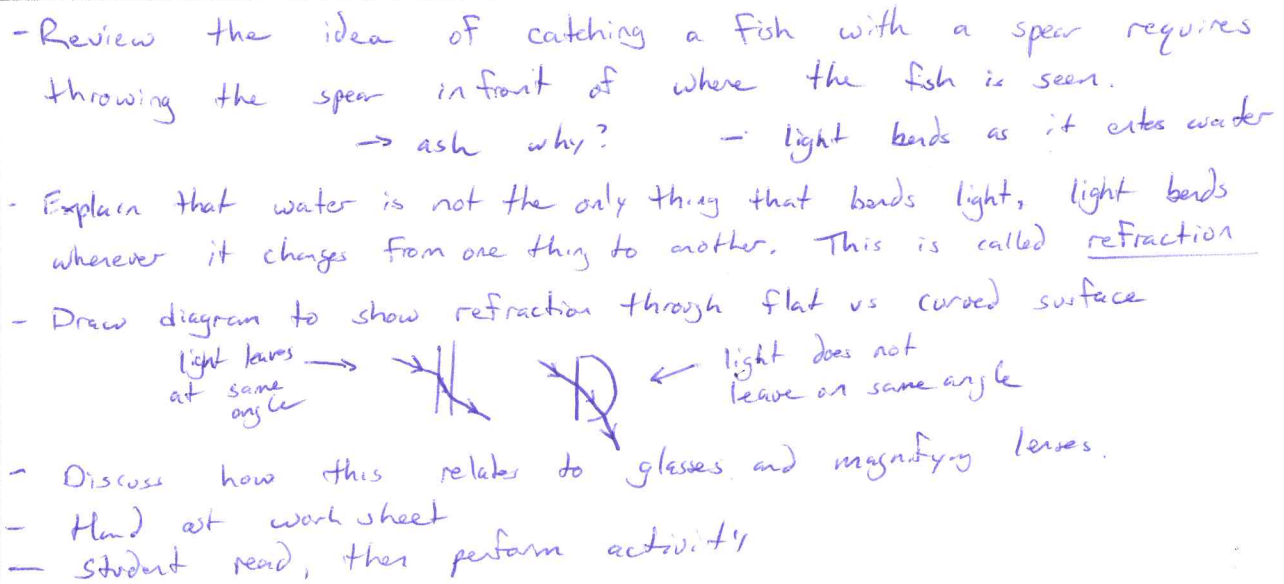 - Review the idea of catching a fish with a spear requires
throwing the spear in front of where the fish is seen.
→ ask why? - light bends as it enters water
- Explain that water is not the only thing that bends light, light bends
wherever it changes from one thing to another. This is called refraction
- Draw diagram to show refraction through flat vs curved surface
light leaves
at same
angle
light does not
leave on same angle
- Discuss how this relates to glasses and magnifying lenses.
- Hand out work sheet
- Student read, then perform activity